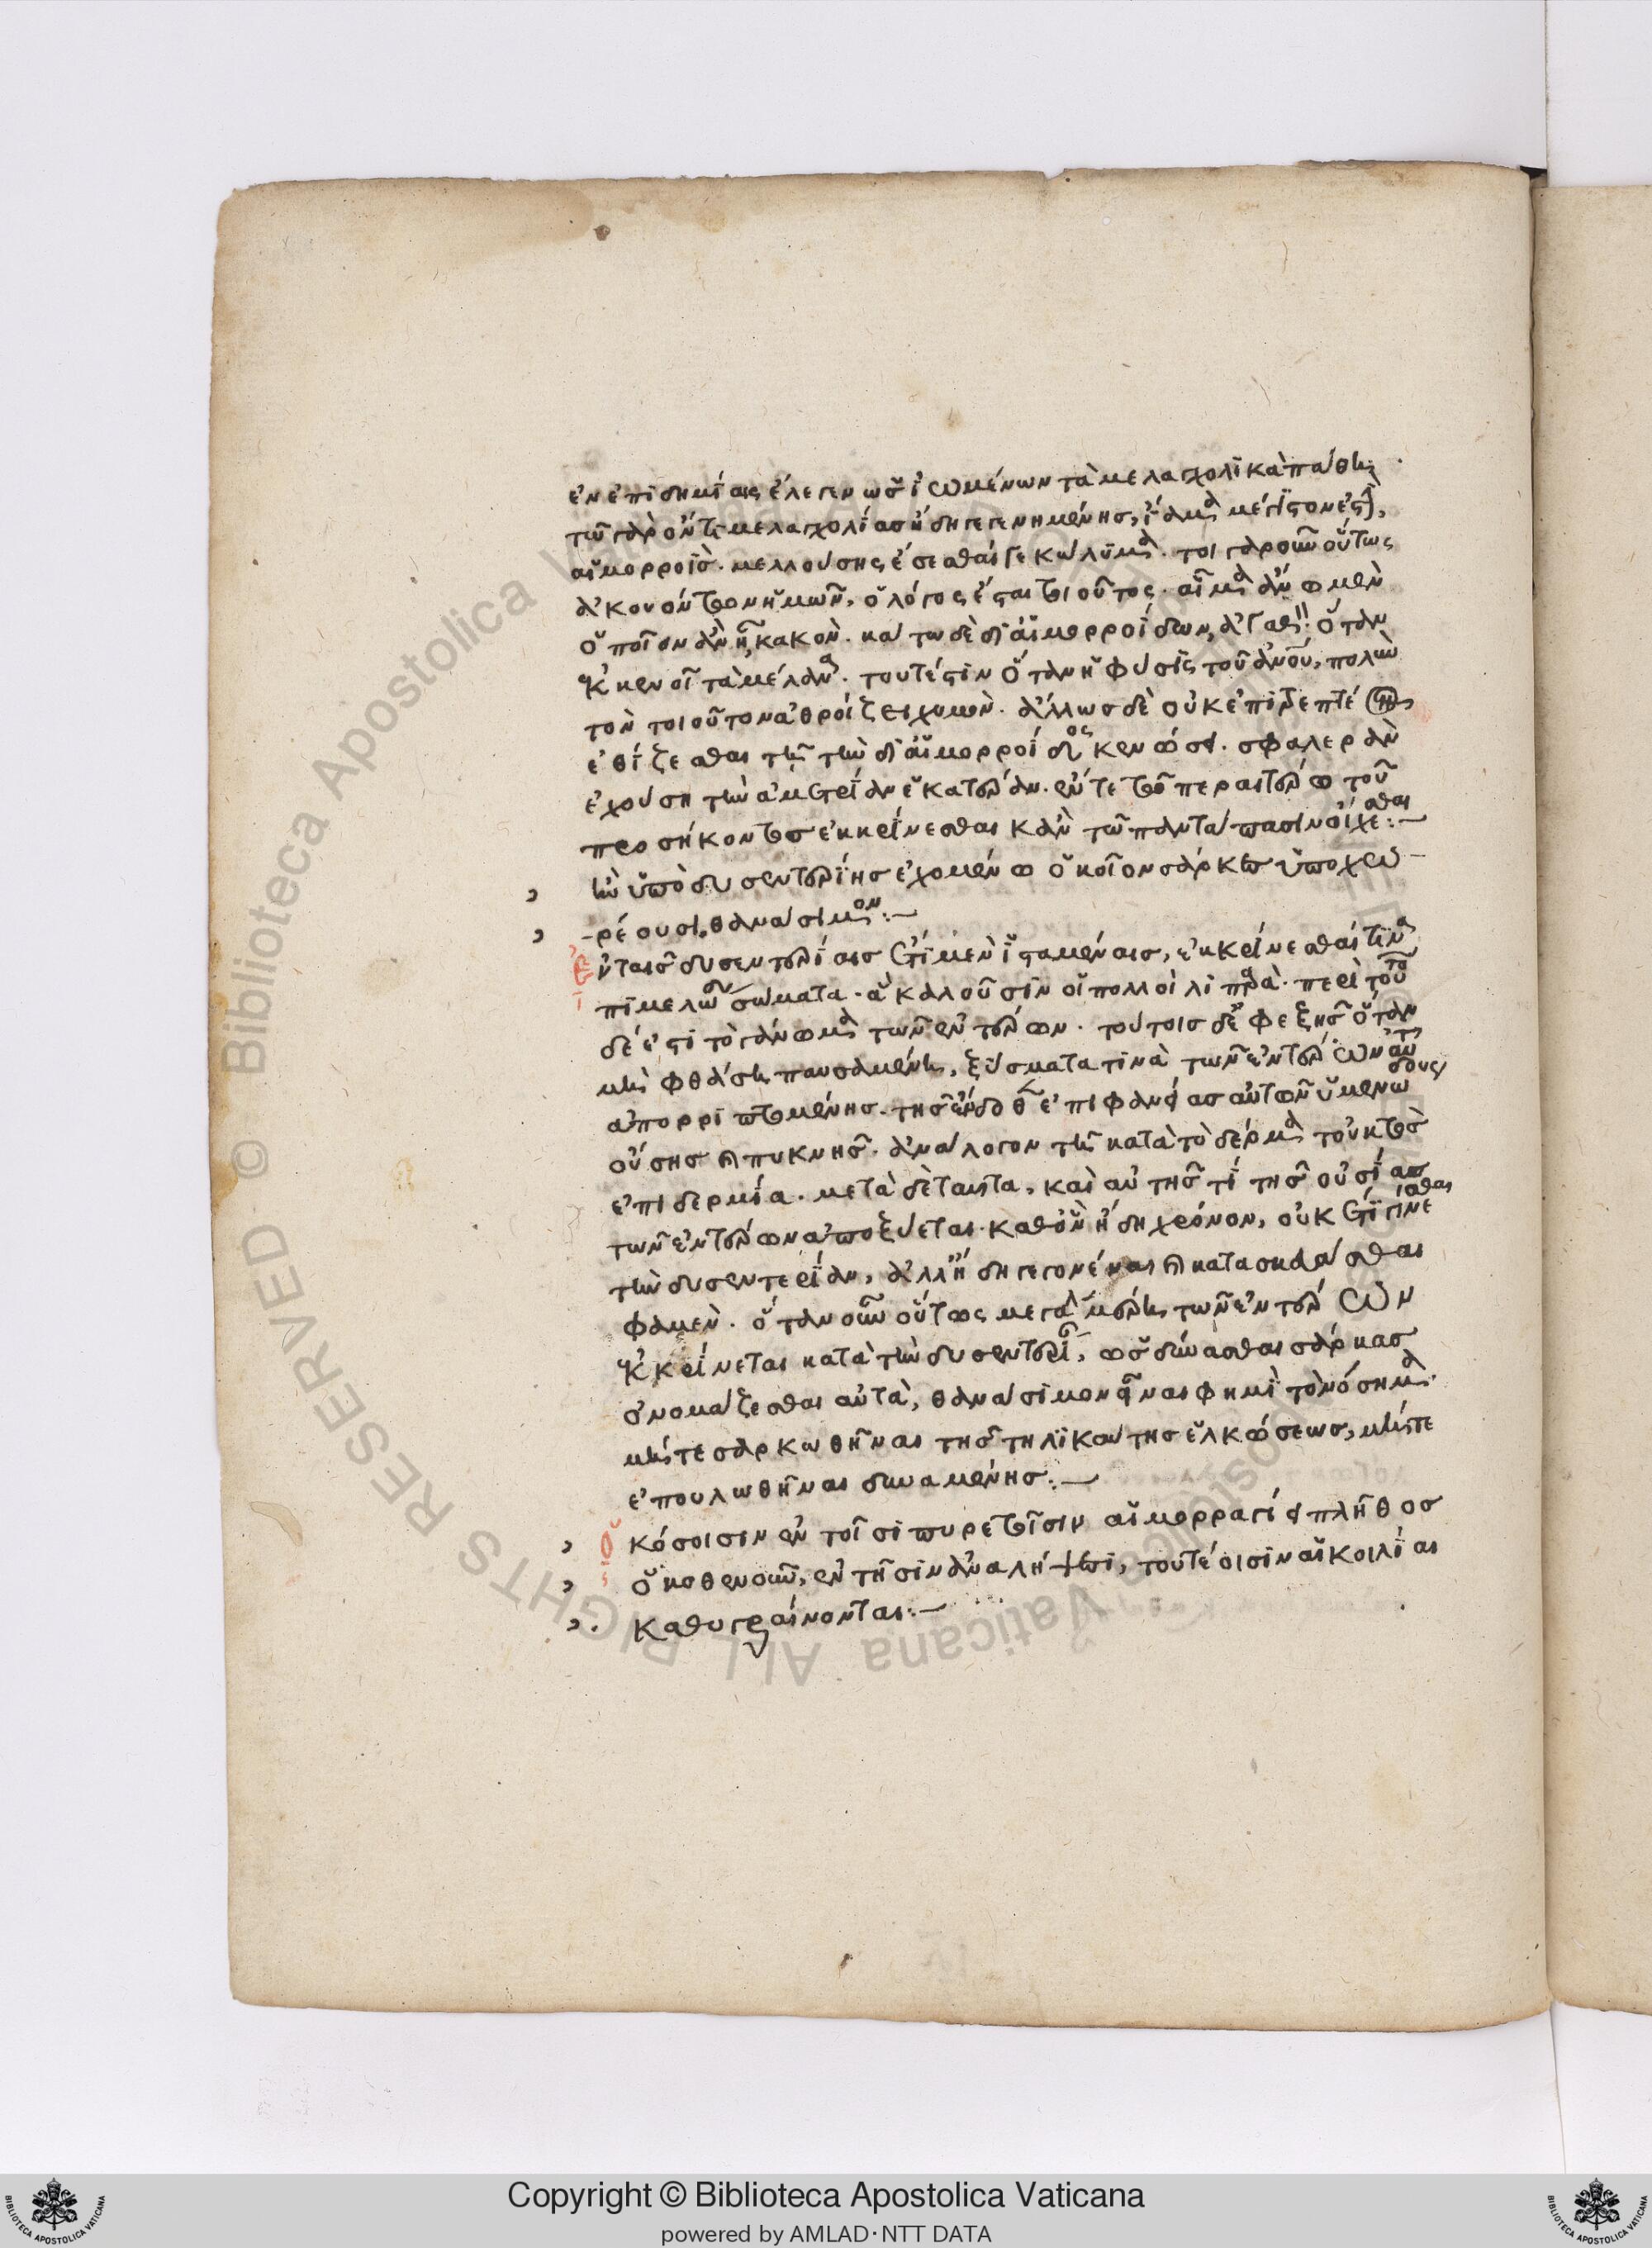 ἐν ἐπιδημίαις ἔλεγεν ὡς ἰωμένων τὰ μελαγχολικὰ πάθη
τῶν γὰρ ὄντι μελαγχολίας ἤδη γεγενημένης, ἴαμα μέγιστον ἐστὶν,
αἱμορροῒς. μελλούσης ἔσεσθαί γε κώλυμα. τοιγαροῦν οὕτως
ἀκουόντων ἡμῶν, ὁ λόγος ἔσται τοιοῦτος. αἷμα ἄνω μὲν
ὁποῖον ἂν ῇ, κακὸν. κάτω δὲ δι' αἱμορροΐδων, ἀγαθὸν ὅταν
ἐκκενοῖ τὰ μέλανα. τουτέστιν ὅταν ἡ φύσις τοῦ ἀνου, πολὺν
τὸν τοιοῦτον ἀθροίζει χυμὸν. ἄλλως δὲ οὐκ ἐπιτρεπτέον
ἐθίζεσθαι τῇ τὴν δι' αἱμορροΐδος κενώσει. σφαλερὰν
ἐχούση τὴν ἀμετρίαν ἑκατέραν. ἔν τε τῷ περαιτέρω τοῦ
προσήκοντος ἐκκρίνεσθαι κἂν τῷ παντάπασιν οἴχεσθαι:—
ἢν ὑπὸ δυσεντερίης ἐχομένω ὁκοῖον σάρκες ὑποχω-
-ρέουσι, θανάσιμον:—
Ἐν ταῖς δυσεντερίαις ἔτι μὲν ἱσταμέναις, ἐκκρίνεσθαί τινα
πιμελώδη σώματα. ἃ καλοῦσιν οἱ πολλοὶ λιπαρὰ. περὶ τοῦτο
δέ ἐστι τὸ γάνωμα τῶν ἐντέρων. τούτοις δ' ἐφεξῆς ὅταν
μὴ φθάση παυσαμένη, ξύσματα τινὰ τῶν ἐντέρων αὐτῶν
ἀπορριπτομένης. τῆς ἔνδοθεν ἐπιφανείας αὐτῶν ὑμενώδους
οὔσης καὶ πυκνῆς. ἀνάλογον τῆ κατὰ τὸ δέρμα τοὐκτὸς
ἐπιδερμία. μετὰ δὲ ταῦτα, καὶ αὐτῆς τὶ τῆς οὐσίας
τῶν ἐντέρων ἀποξύεται. καθ' ὃν ἤδη χρόνον, οὐκ ἔτι γίνεσθαι
τὴν δυσεντερίαν, ἀλλ' ἤδη γεγονέναι καὶ κατασκευάσθαι
φαμὲν. ὅταν οὖν οὕτως μεγάλα μέρη τῶν ἐντέρων
ἐκκρίνεται κατὰ τὴν δυσεντερίαν, ὡς δύνασθαι σάρκας
ὀνομάζεσθαι αὐτὰ, θανάσιμον εἶναι φημὶ τὸ νόσημα
μήτε σαρκωθῆναι τῆς τηλικαύτης ἑλκώσεως, μήτε
ἐπουλωθῆναι δυναμένης:—
Ὁκόσοισιν ἐν τοῖσι πυρετοῖσιν αἱμορραγέει πλῆθος
ὁκόθεν οὖν, ἐν τῆσιν ἀναλήψεσι, τουτέοισιν αἱ κοιλίαι
καθυγραίνονται:—
Copyright © Biblioteca Apostolica Vaticana
powered by AMLAD·NTT DATA